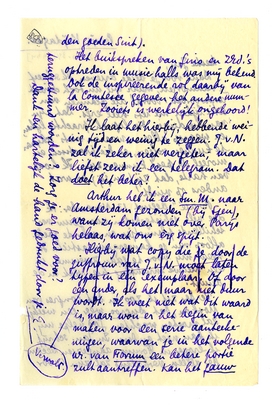 den goeden Sint).
Het buikspreken van Gino en Ed.'s
optreden in music halls was mij bekend.
Ook de inspireerende rol daarbij van
la Comtesse gegeven het andere num-
mer. Zooiets is werkelijk ongehoord!
Ik laat het hierbij, hebbende wei-
nig tijd en weinig te zeggen. J.v.N.
zal ik zeker niet vergeten; maar
liefst zend ik een telegram. Dat
doet het beter.
Arthur het is naar
Amsterdam gezonden (bij Gen),
want zij komen niet Parijs
helaas, wat ons erg spijt.
Hierbij wat copij die je door de
juffrouw van J.v.N. moet laten
typen in één exemplaar, zet ervoor
een ander, als het maar niet duur
wordt. Ik weet niet wat dit waard
is, maar won er het begin van
maken voor een serie aanteeke-
ningen waarvan je in het volgende
nr. van Forum een betere portie
zult aantreffen. Kan het gauw
teruggestuurd worden? Zorg je er goed voor?
Dank en hartelijk de hand gedrukt door je